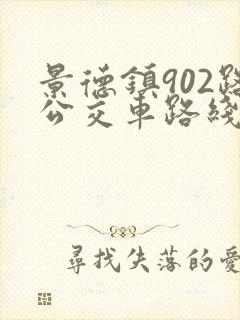 景德鎮902路
公交車路綫
尋找失落的愛